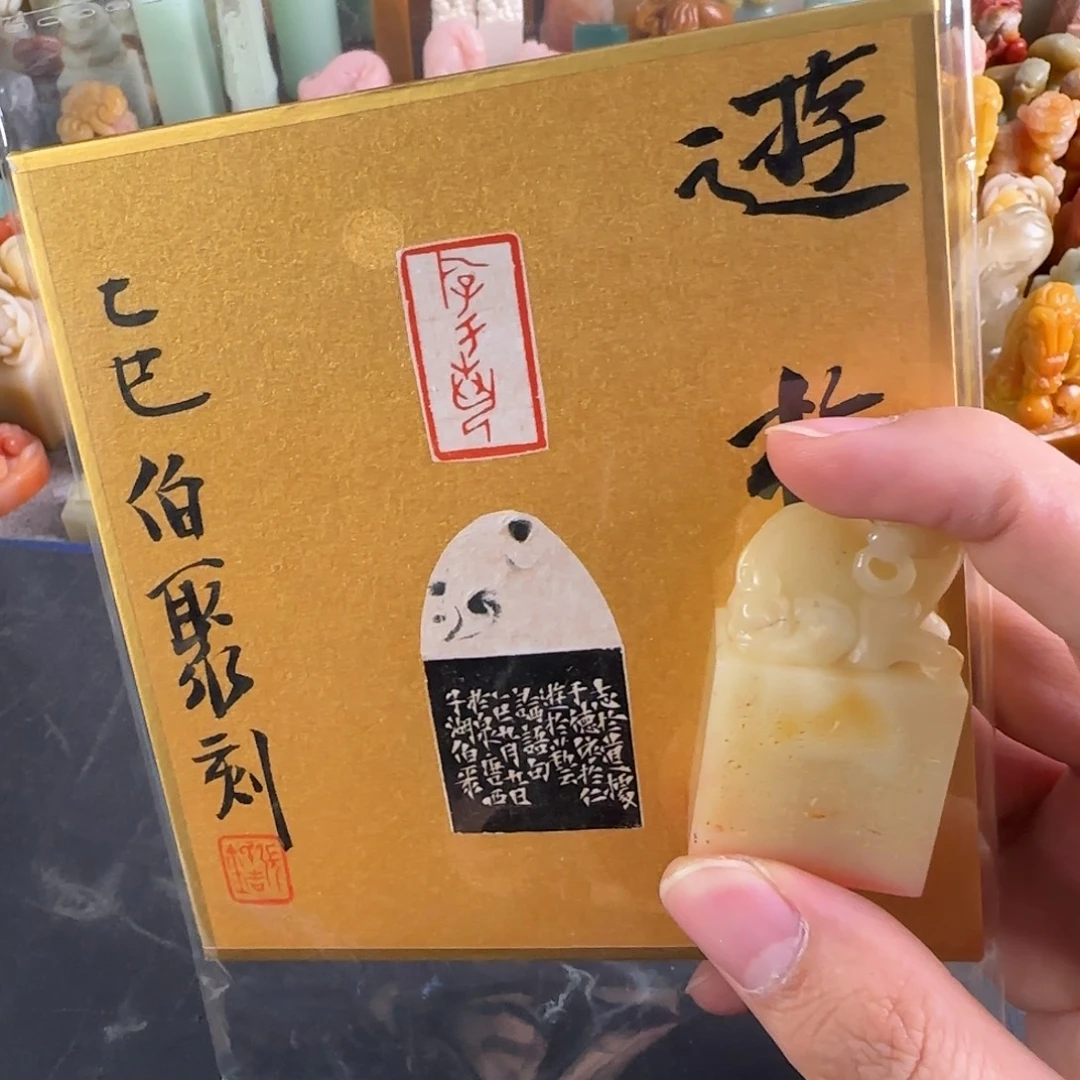 遊
乙巳伯聚刻
志於道據
于德依於仁
游於藝云
論語句
乙巳九月九日
於泉唐西
子湖伯聚